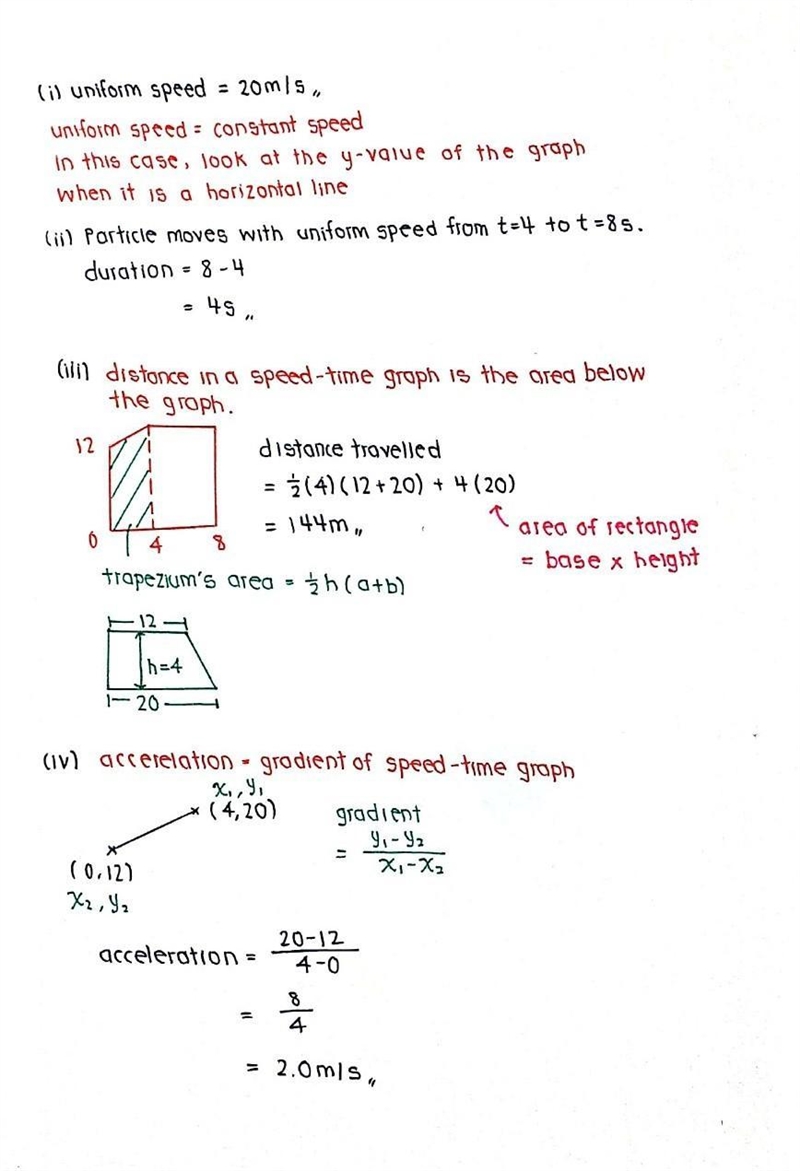 (i) uniform speed = 20m/s "
uniform speed = constant speed
In this case, look at the y-value of the graph
when it is a horizontal line
(ii) Particle moves with uniform speed from t=4 to t=8s.
duration = 8-4
= 4s "
(iii) distance in a speed-time graph is the area below
the graph.
12
0 4 8
distance travelled
= ½(4)(12+20) + 4(20)
= 144m "
area of rectangle
= base x height
trapezium's area = ½h(a+b)
12
h=4
20
(iv) accerelation = gradient of speed-time graph
x₁, y₁
(4,20)
(0,12)
x₂, y₂
gradient
= y₁-y₂ / x₁-x₂
acceleration = 20-12 / 4-0
= 8 / 4
= 2.0m/s "